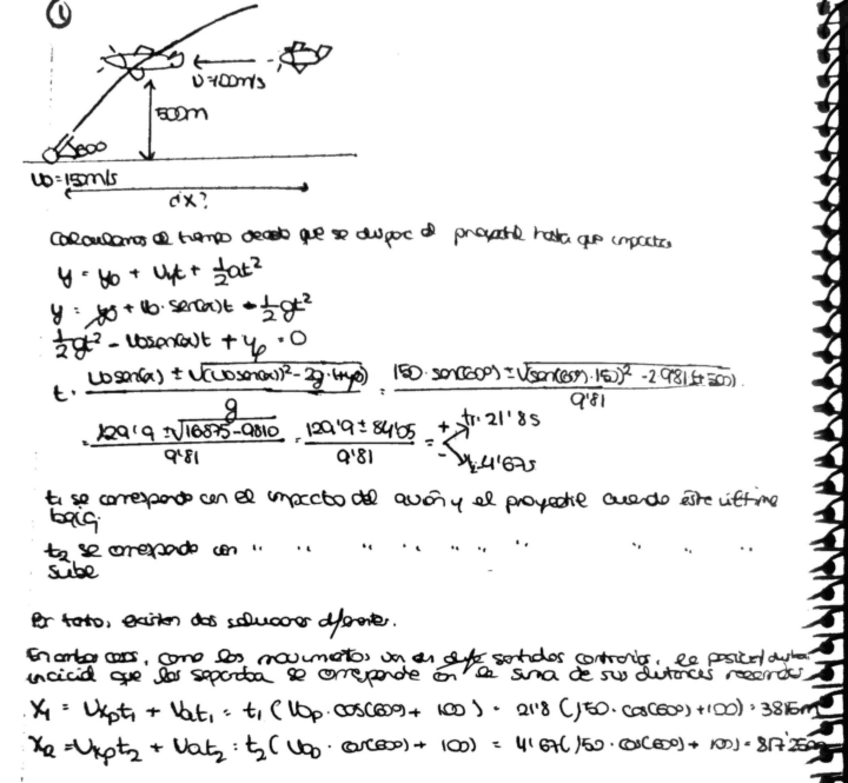 1
v=100m/s
500m
60º
v0=150m/s
dx?
Calculamos el tiempo desde que se dispara el proyectil hasta que impacta
y = y0 + vyt + 1/2at²
y = y0 + v0·sen(α)t - 1/2gt²
1/2gt² - v0sen(α)t + y = 0
t = (v0sen(α) ± √((v0sen(α))² - 2g·(+y0)))/g = (150·sen(60º) ± √((sen(60º)·150)² - 2·9'81(+500)))/9'81
= (129'9 ± √(16875-9810))/9'81 = (129'9 ± 84'05)/9'81 = + t1: 21'8s
- t2: 4'67s
t1 se corresponde con el impacto del avión y el proyectil cuando éste último
baja.
t2 se corresponde con " " " " " " " " " "
sube
Por tanto, existen dos soluciones diferentes.
En ambos casos, como los movimientos van en sentidos contrarios, la posición/distancia
inicial que los separaba se corresponde con la suma de sus distancias recorridas
X1 = Vxpt1 + Vat1 = t1(V0p·cos(60º) + 100) = 21'8(150·cos(60º)+100) = 3815m
X2 = Vxpt2 + Vat2 = t2(V0p·cos(60º) + 100) = 4'67(150·cos(60º) + 100) = 817'25m